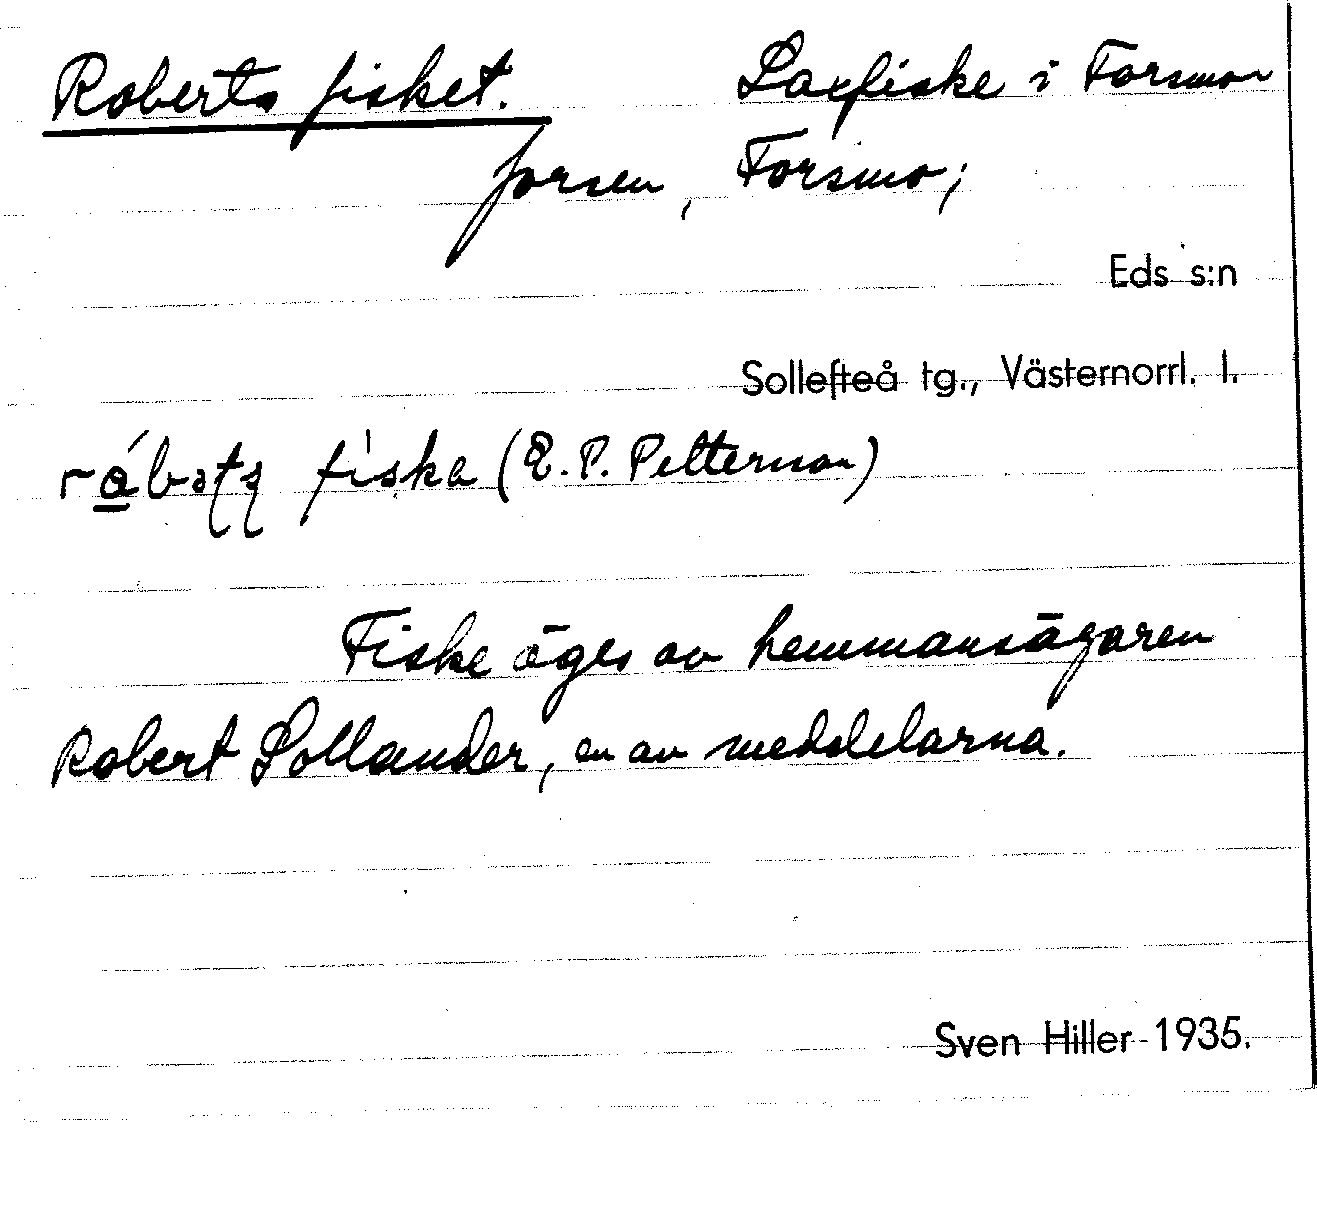 Roberts fisket. Laxfiske i Forsmo-
forsen, Forsmo;
Eds s:n
Sollefteå tg., Västernorrl. l.
fiska (E. P. Petterson)
Fiske äges av hemmansägaren
Robert Sollander, en av meddelarna.
Sven Hiller 1935.